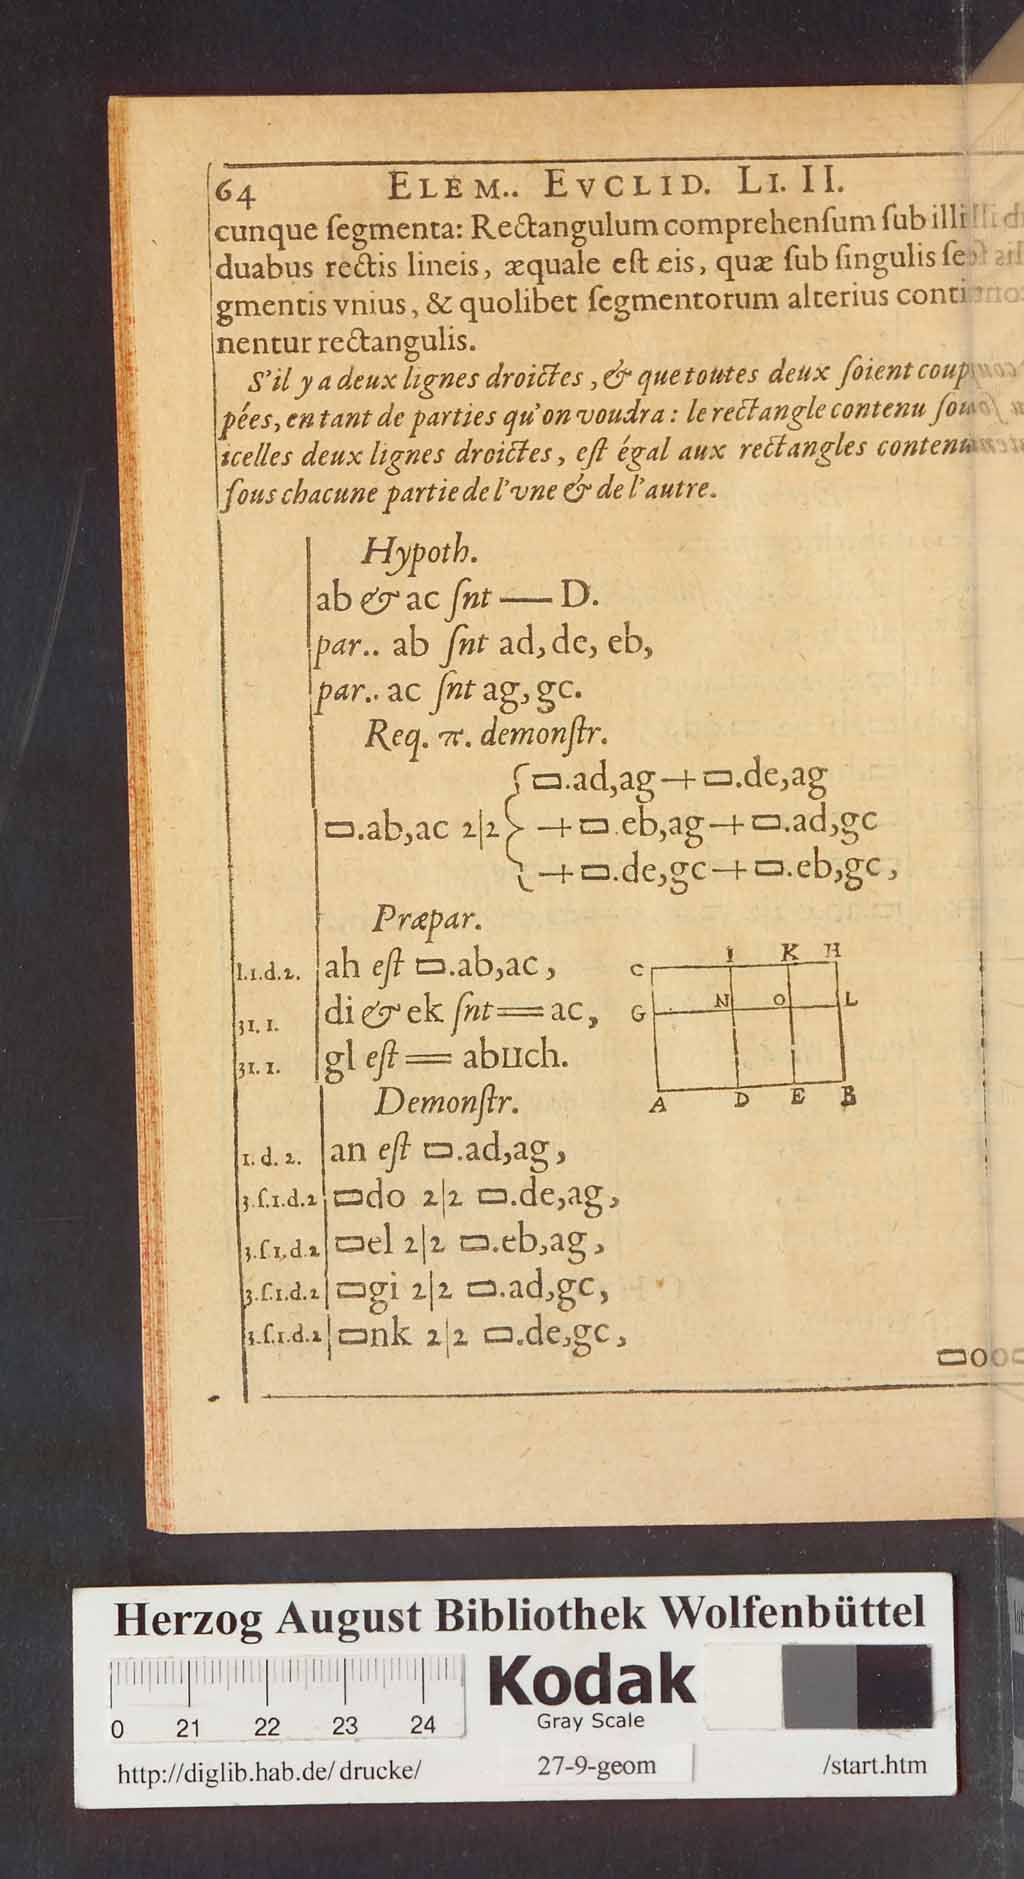 64 ELEM.. EVCLID. LI. II.
cunque ſegmenta: Rectangulum comprehenſum ſub illi
duabus rectis lineis, æquale eſt eis, quæ ſub ſingulis ſe
gmentis vnius, & quolibet ſegmentorum alterius conti
nentur rectangulis.
S'il y a deux lignes droictes, & que toutes deux ſoient coup
pées, en tant de parties qu'on voudra: le rectangle contenu ſou
icelles deux lignes droictes, eſt égal aux rectangles contenu
ſous chacune partie de l'vne & de l'autre.
Hypoth.
ab & ac ſnt — D.
par.. ab ſnt ad, de, eb,
par.. ac ſnt ag, gc.
Req. π. demonſtr.
{▭.ad,ag + ▭.de,ag
▭.ab,ac 2|2 } + ▭.eb,ag + ▭.ad,gc
{ + ▭.de,gc + ▭.eb,gc,
Præpar.
1.1.d.2. ah eſt ▭.ab,ac,
31. 1. di & ek ſnt = ac,
31. 1. gl eſt = abIIch.
C I K H
G N O L
A D E B
Demonſtr.
1. d. 2. an eſt ▭.ad,ag,
3.ſ.1.d.2 ▭do 2|2 ▭.de,ag,
3.ſ.1.d.2 ▭el 2|2 ▭.eb,ag,
3.ſ.1.d.2 ▭gi 2|2 ▭.ad,gc,
3.ſ.1.d.2 ▭nk 2|2 ▭.de,gc,
▭o
Herzog August Bibliothek Wolfenbüttel
0 21 22 23 24
Kodak
Gray Scale
http://diglib.hab.de/drucke/ 27-9-geom /start.htm